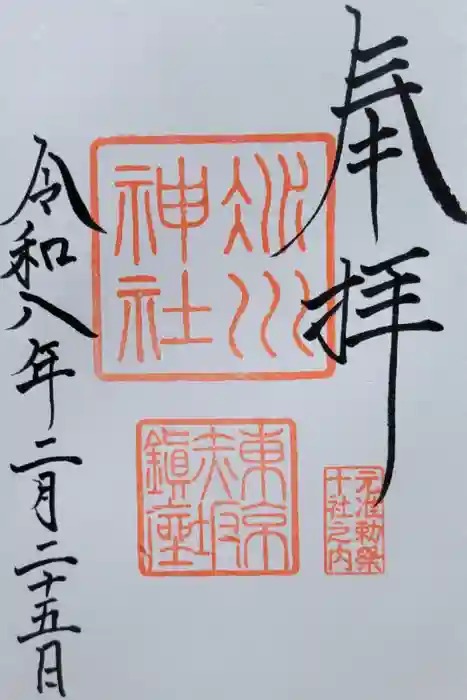 奉拝
氷川
神社
東京
赤坂
鎮座
元准勅祭
十社之内
令和八年二月二十五日